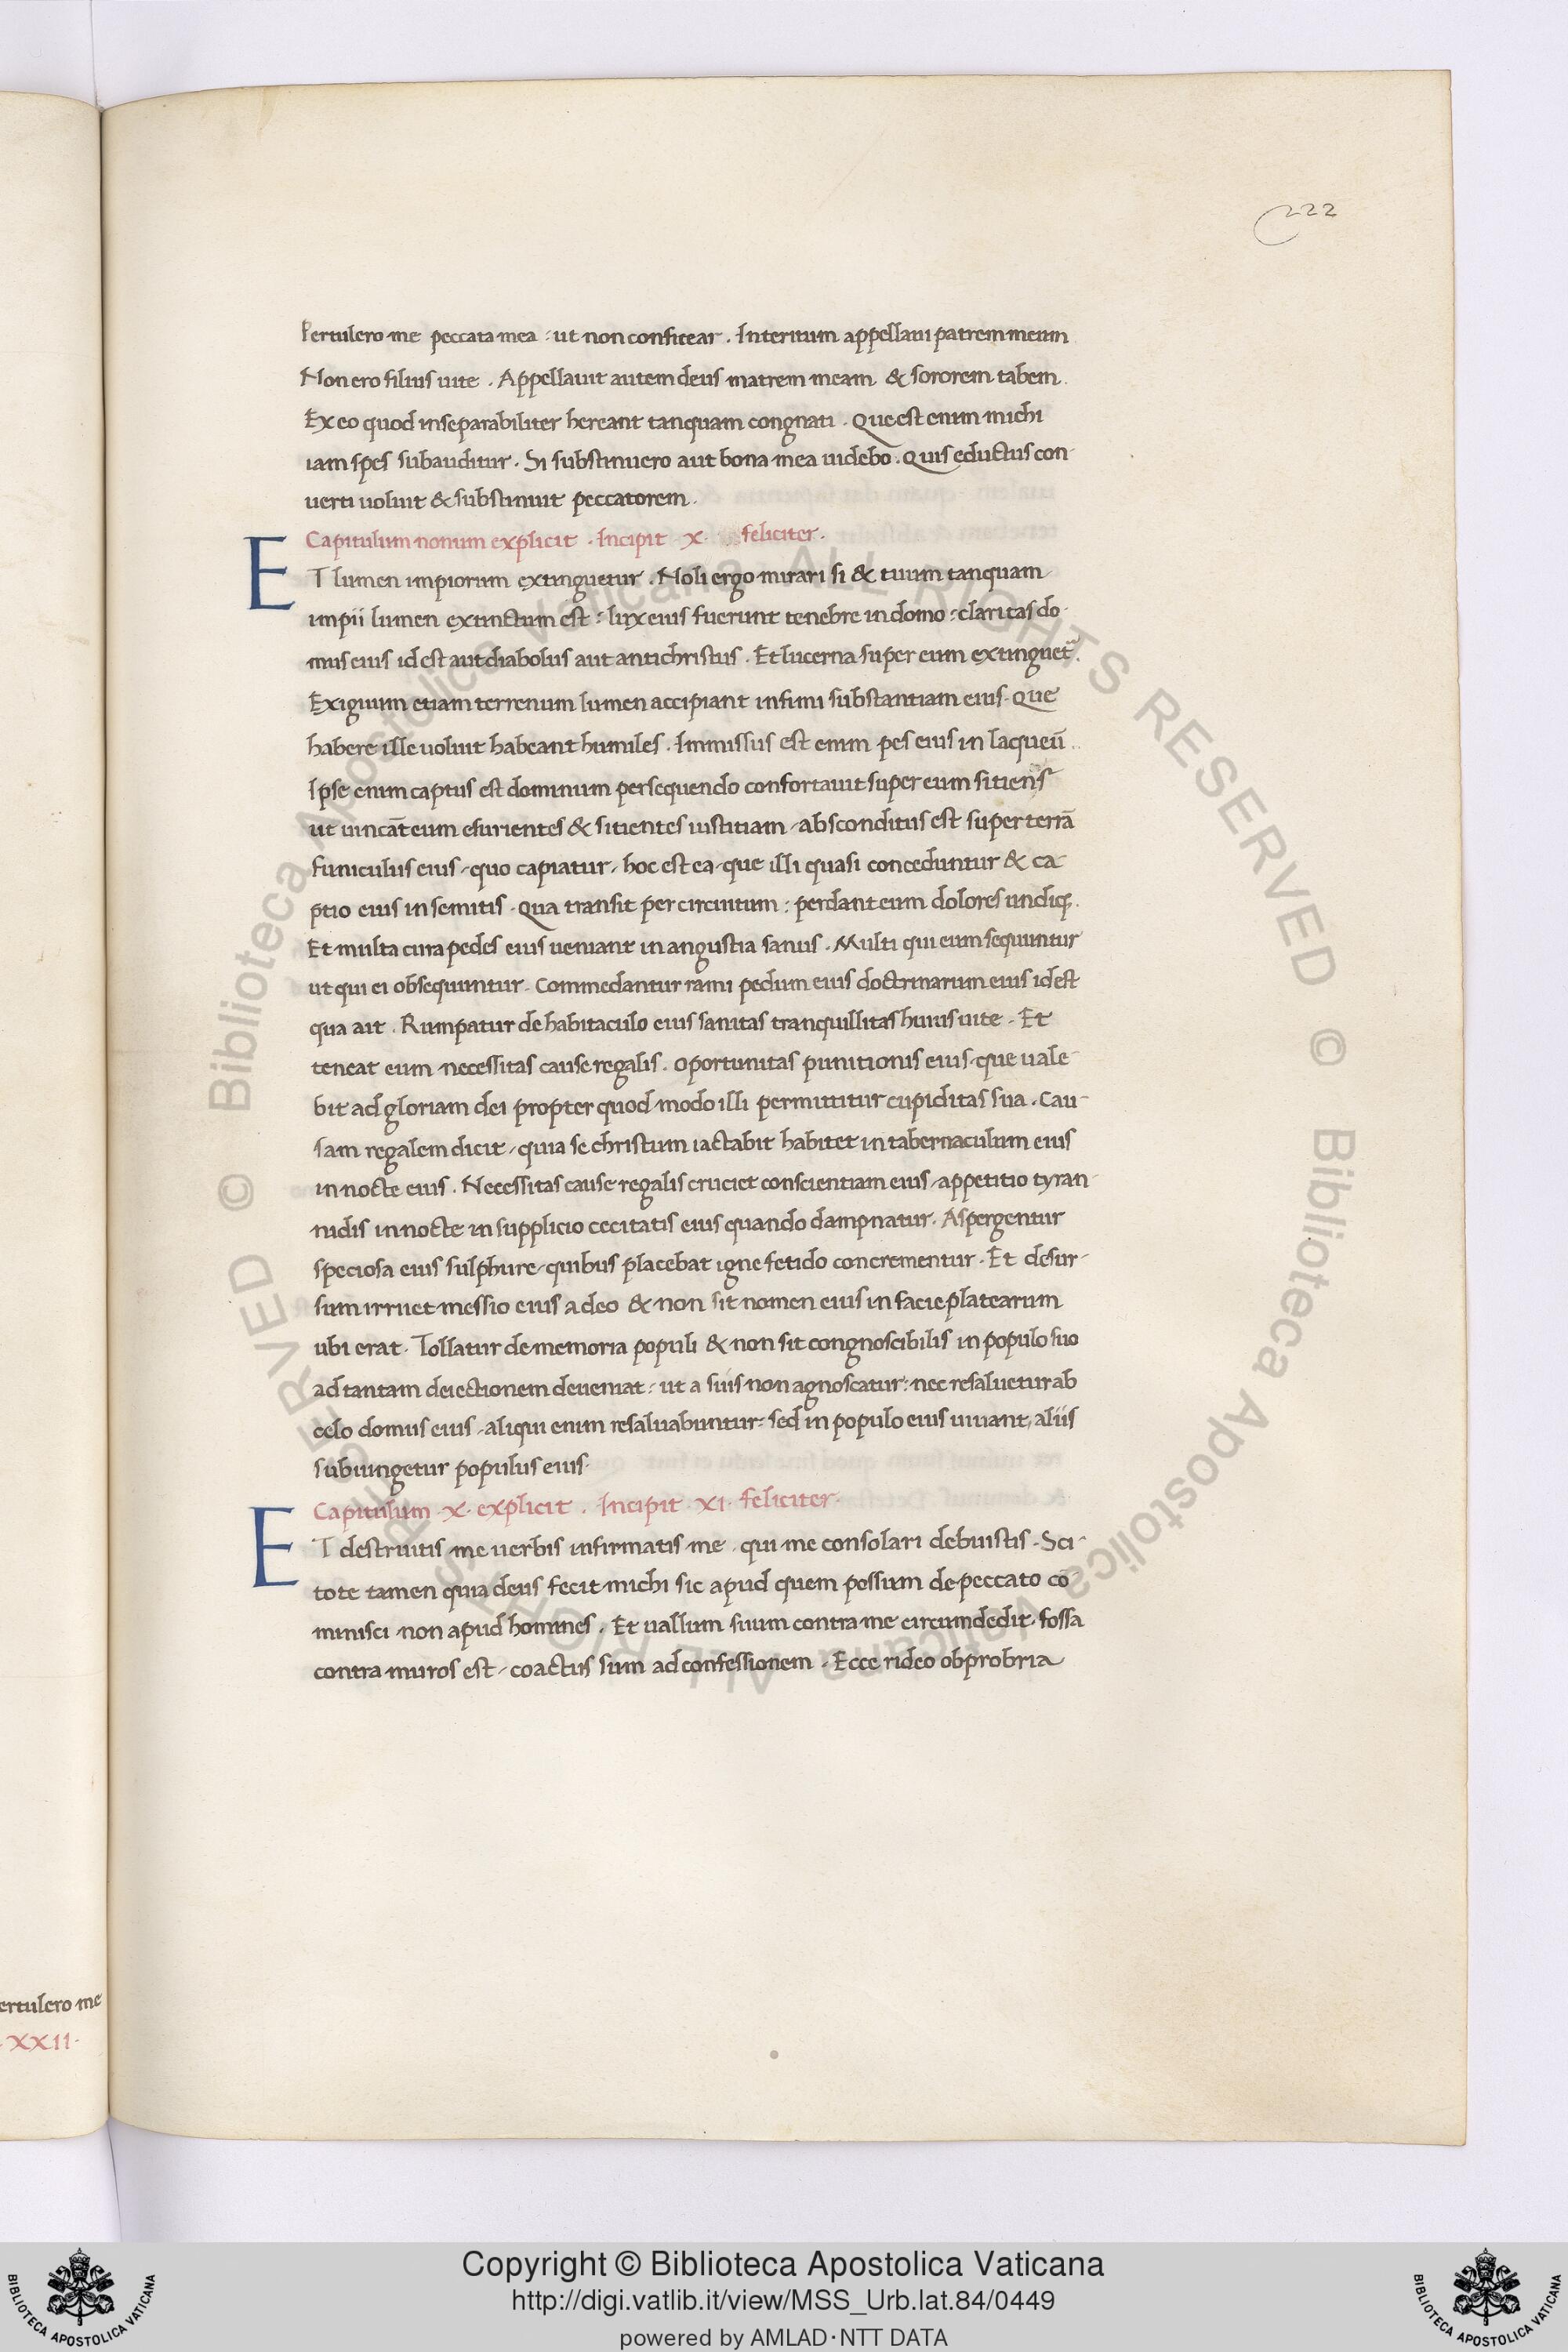 222
Pertulero me peccata mea : ut non confitear . Interitum appellaui patrem meum
Non ero filius uite . Appellauit autem deus matrem meam & sororem tabem .
Ex eo quod inseparabiliter hereant tanquam congnati . Que est enim michi
iam spes subauditur . Si substinuero aut bona mea uidebo . Quis eductus con-
uerti uoluit & substinuit peccatorem .
Capitulum nonum explicit . Incipit x . feliciter .
ET lumen impiorum extinguetur . Noli ergo mirari si & tuum tanquam
impii lumen extinctum est : lux eius fuerunt tenebre in domo : claritas do-
mus eius id est aut diabolus aut antichristus . Et lucerna super eum extinguet᷑ .
Exiguum etiam terrenum lumen accipiant infimi substantiam eius . Que
habere ille uoluit habeant humiles . Immissus est enim pes eius in laqueū .
Ipse enim captus est dominum persequendo confortauit super eum sitiens
ut uincāt eum esurientes & sitientes iustitiam - absconditus est super terrā
funiculus eius - quo capiatur - hoc est ea - que illi quasi conceduntur & ca-
ptio eius in semitis . Qua transit per circuitum : perdant eum dolores undiq; .
Et multa cura pedes eius ueniant in angustia sanus . Multi qui eum sequuntur
ut qui ei obsequuntur . Commedantur rami pedum eius doctrinarum eius id est
qua ait . Rumpatur de habitaculo eius sanitas tranquillitas huius uite . Et
teneat eum necessitas cause regalis . Oportunitas punitionis eius - que uale-
bit ad gloriam dei propter quod modo illi permittitur cupiditas sua . Cau-
sam regalem dicit - quia se christum iactabit habitet in tabernaculum eius
in nocte eius . Necessitas cause regalis cruciet conscientiam eius - appetitio tyran-
nidis in nocte in supplicio cecitatis eius quando dampnatur . Aspergentur
speciosa eius sulphure - quibus placebat igne fetido concrementur . Et desur-
sum irruet messio eius a deo & non sit nomen eius in facie platearum
ubi erat . Tollatur de memoria populi & non sit congnoscibilis in populo suo
ad tantam deiectionem deueniat : ut a suis non agnoscatur : nec resaluetur ab
celo domus eius - aliqui enim resaluabuntur : sed in populo eius uiuant, aliis
subiungetur populus eius .
Capitulum . x . explicit . Incipit . xi . feliciter .
ET destruitis me uerbis infirmatis me . qui me consolari debuistis . Sci-
tote tamen quia deus fecit michi sic apud quem possum de peccato co-
minisci non apud homines . Et uallum suum contra me circumdedit . fossa
contra muros est - coactus sum ad confessionem . Ecce rideo obprobria
ertulero me
. XXII .
© Biblioteca Apostolica Vaticana ALL RIGHTS RESERVED © Biblioteca Apostolica Vaticana ALL RIGHTS RESERVED
Copyright © Biblioteca Apostolica Vaticana
http://digi.vatlib.it/view/MSS_Urb.lat.84/0449
powered by AMLAD·NTT DATA
BIBLIOTECA APOSTOLICA VATICANA
BIBLIOTECA APOSTOLICA VATICANA